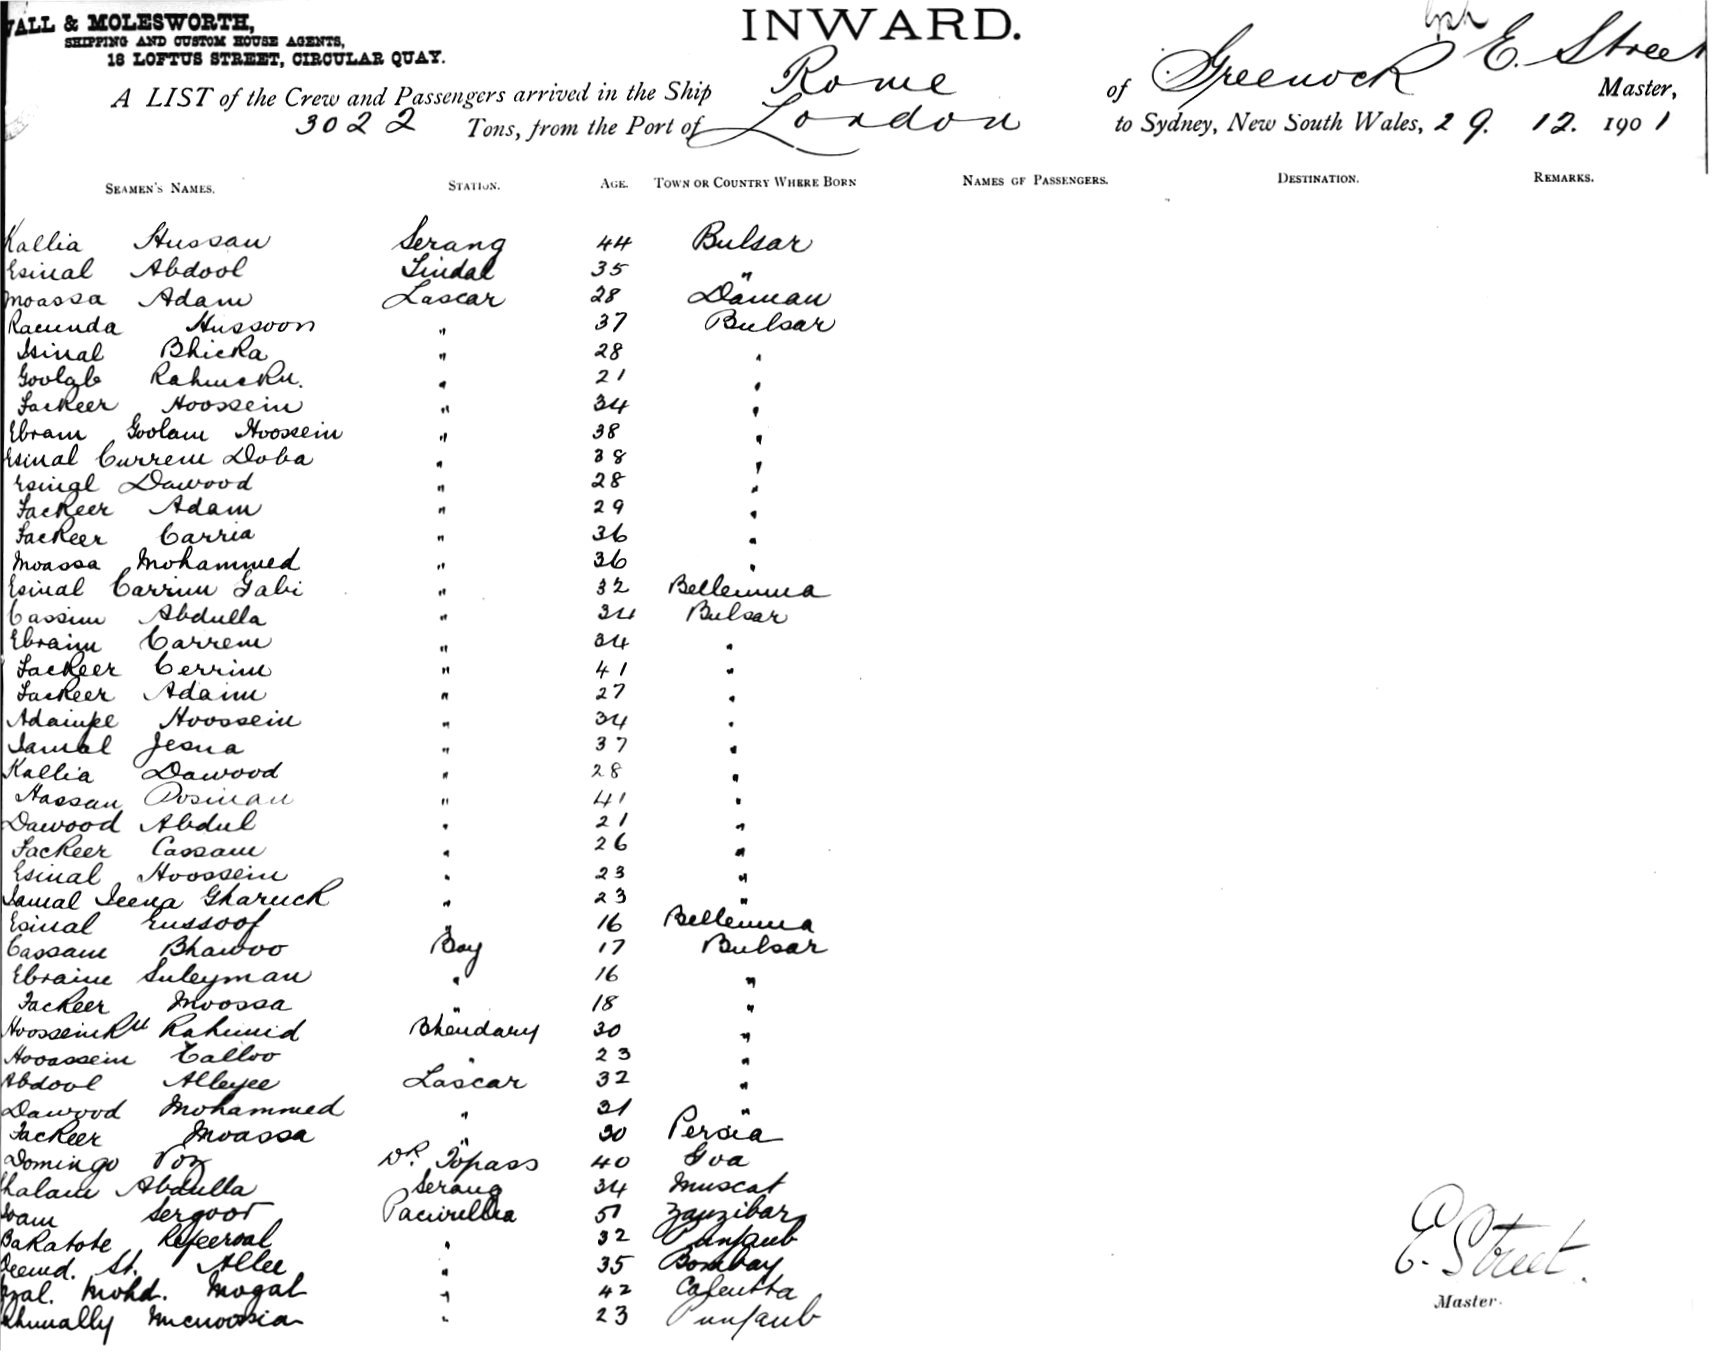 WALL & MOLESWORTH,
SHIPPING AND CUSTOM HOUSE AGENTS,
18 LOFTUS STREET, CIRCULAR QUAY.
INWARD.
A LIST of the Crew and Passengers arrived in the Ship Rome of Greenock E. Street Master,
3022 Tons, from the Port of London to Sydney, New South Wales, 29. 12. 1901
SEAMEN'S NAMES. STATION. AGE. TOWN OR COUNTRY WHERE BORN NAMES OF PASSENGERS. DESTINATION. REMARKS.
Kallia Hussan Serang 44 Bulsar
Esinal Abdool Tindal 35 "
Moassa Adam Lascar 28 Daman
Racunda Hussoon " 37 Bulsar
Isinal Bhicka " 28 "
Goolab " 21 "
Fackeer Hoossein " 34 "
Ebram Goolam Hoossein " 38 "
Esinal Currem Doba " 38 "
Esinal Dawood " 28 "
Fackeer Adam " 29 "
Fackeer Carria " 36 "
Moassa Mohammed " 36 "
Esinal Carrim Gabi " 32 Bellemma
Cassim Abdulla " 34 Bulsar
Ebraim Carrem " 34 "
Fackeer Cerrim " 41 "
Fackeer Adam " 27 "
Hoossein " 34 "
Jamal Jesna " 37 "
Kallia Dawood " 28 "
Hassan Dosman " 41 "
Dawood Abdul " 21 "
Fackeer Cassam " 26 "
Esinal Hoossein " 23 "
Jamal Jeena Gharuck " 23 "
Esinal Eussoof " 16 Bellemma
Cassam Bhawoo Boy 17 Bulsar
Ebraim Suleyman " 16 "
Fackeer Moossa " 18 "
Rahimid Bhendary 30 "
Hooassein Calloo " 23 "
Abdool Alleyee Lascar 32 "
Dawood Mohammed " 31 "
Fackeer Moassa " 30 Persia
Domingo Voz Dk. Topass 40 Goa
Abdulla Serang 34 Muscat
Sergoor 51 Zanzibar
Bakatote " 32 Punjaub
St. Allee " 35 Bombay
Mohd. Mogal " 42 Calcutta
" 23 Punjaub
E. Street.
Master.